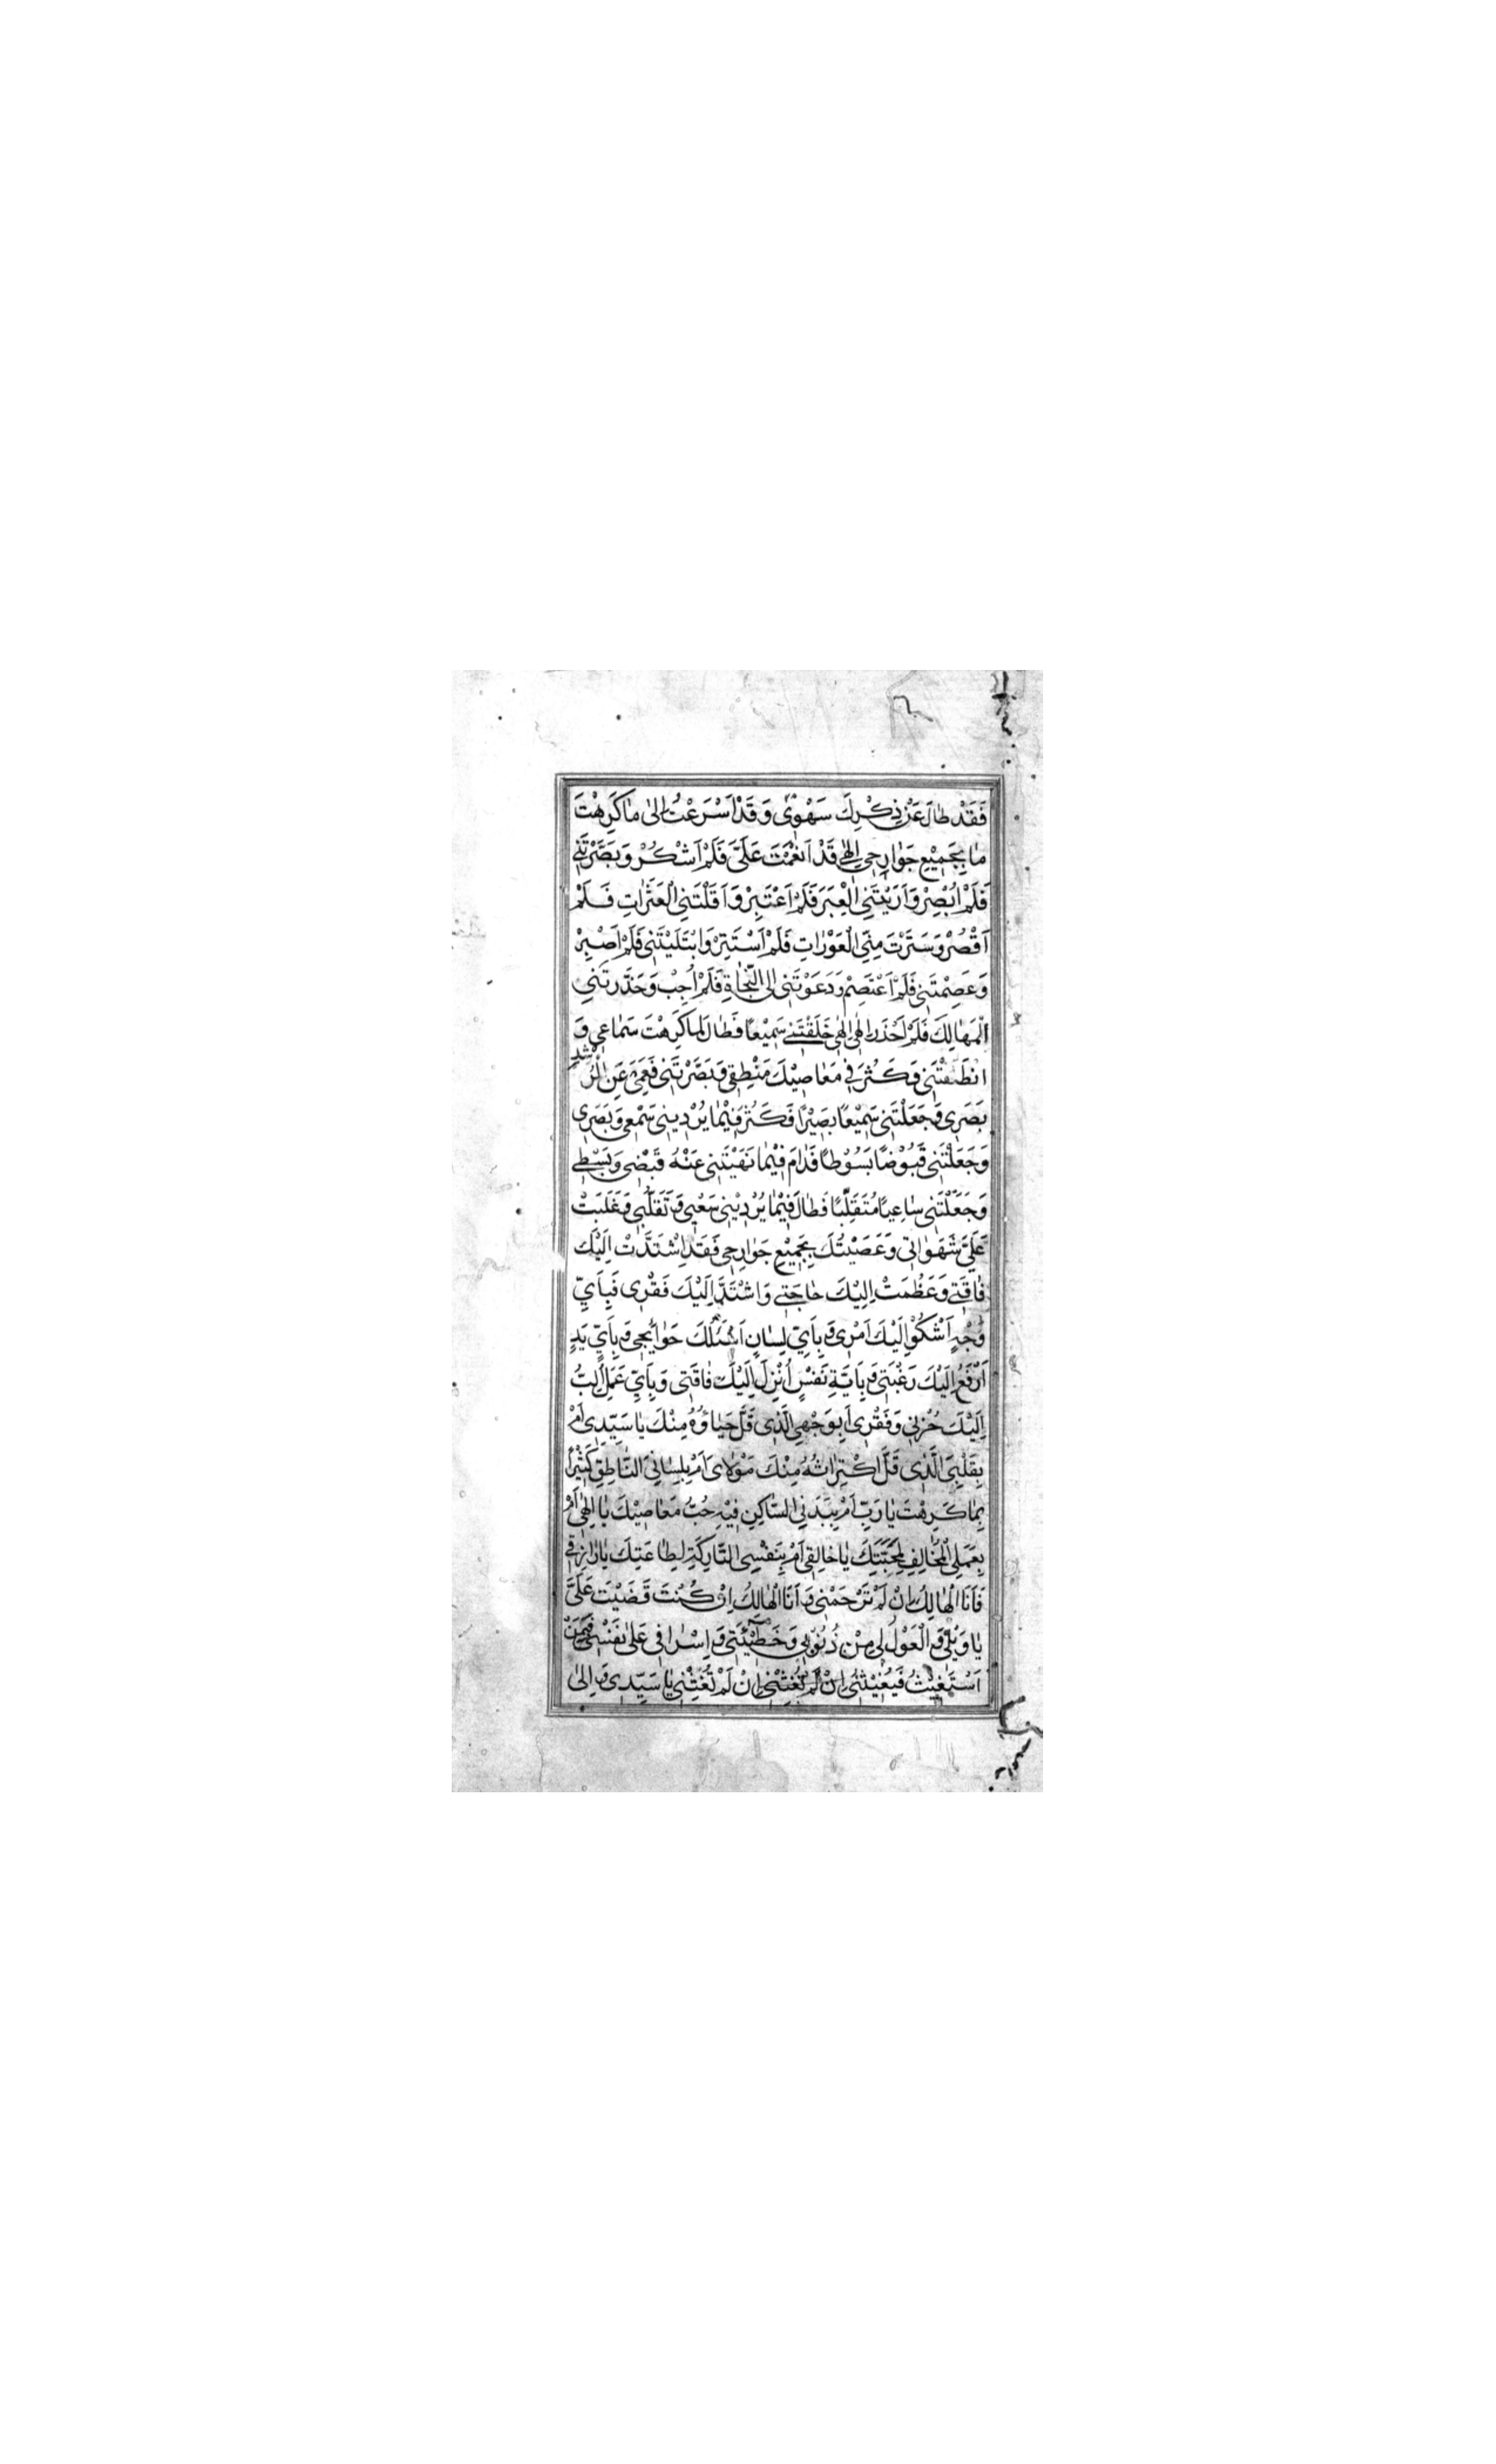 فَقَدْ طَالَ عَنْ ذِكْرِكَ سَهْوِي وَقَدْ اَسْرَعْتُ اِلىٰ مَا كَرِهْتَ
مَا بِجَمِيْعِ جَوَارِحِي اِلٰهِي قَدْ اَنْعَمْتَ عَلَيَّ فَلَمْ اَشْكُرْ وَبَصَّرْتَنِي
فَلَمْ اُبْصِرْ وَاَرَيْتَنِي الْعِبَرَ فَلَمْ اَعْتَبِرْ وَاَقَلْتَنِي الْعَثَرَاتِ فَلَمْ
اَقْصُرْ وَسَتَرْتَ مِنِّي الْعَوْرَاتِ فَلَمْ اَسْتَتِرْ وَابْتَلَيْتَنِي فَلَمْ اَصْبِرْ
وَعَصَمْتَنِي فَلَمْ اَعْتَصِمْ وَدَعَوْتَنِي اِلَى النَّجَاةِ فَلَمْ اُجِبْ وَحَذَّرْتَنِي
الْمَهَالِكَ فَلَمْ اَحْذَرْ اِلٰهِي اِلٰهِي خَلَقْتَنِي سَمِيْعًا فَطَالَ لِمَا كَرِهْتَ سَمَاعِي وَ
اَنْطَقْتَنِي فَكَثُرَ فِي مَعَاصِيْكَ مَنْطِقِي وَبَصَّرْتَنِي فَعَمِيَ عَنِ الرُّشْدِ
بَصَرِي وَجَعَلْتَنِي سَمِيْعًا بَصِيْرًا فَكَثُرَ فِيْمَا يُرْدِيْنِي سَمْعِي وَبَصَرِي
وَجَعَلْتَنِي قَبُوْضًا بَسُوْطًا فَدَامَ فِيْمَا نَهَيْتَنِي عَنْهُ قَبْضِي وَبَسْطِي
وَجَعَلْتَنِي سَاعِيًا مُتَقَلِّبًا فَطَالَ فِيْمَا يُرْدِيْنِي سَعْيِي وَتَقَلُّبِي وَغَلَبَتْ
عَلَيَّ شَهَوَاتِي وَعَصَيْتُكَ بِجَمِيْعِ جَوَارِحِي فَقَدِ اشْتَدَّتْ اِلَيْكَ
فَاقَتِي وَعَظُمَتْ اِلَيْكَ حَاجَتِي وَاشْتَدَّ اِلَيْكَ فَقْرِي فَبِاَيِّ
وَجْهٍ اَشْكُوْ اِلَيْكَ اَمْرِي وَبِاَيِّ لِسَانٍ اَسْئَلُكَ حَوَائِجِي وَبِاَيِّ يَدٍ
اَرْفَعُ اِلَيْكَ رَغْبَتِي وَبِاَيَّةِ نَفْسٍ اُنْزِلُ اِلَيْكَ فَاقَتِي وَبِاَيِّ عَمَلٍ اَبُثُّ
اِلَيْكَ حُزْنِي وَفَقْرِي اَبِوَجْهِي الَّذِي قَلَّ حَيَاؤُهُ مِنْكَ يَا سَيِّدِي اَمْ
بِقَلْبِيَ الَّذِي قَلَّ اكْتِرَاثُهُ مِنْكَ مَوْلَايَ اَمْ بِلِسَانِي النَّاطِقِ كَثِيْرًا
بِمَا كَرِهْتَ يَا رَبِّ اَمْ بِبَدَنِي السَّاكِنِ فِيْهِ حُبُّ مَعَاصِيْكَ يَا اِلٰهِي اَمْ
بِعَمَلِي الْمُخَالِفِ لِمَحَبَّتِكَ يَا خَالِقِي اَمْ بِنَفْسِي التَّارِكَةِ لِطَاعَتِكَ يَا رَازِقِي
فَاَنَا الْهَالِكُ اِنْ لَمْ تَرْحَمْنِي وَاَنَا الْهَالِكُ اِنْ كُنْتَ قَضَيْتَ عَلَيَّ
يَا وَيْلِي وَالْعَوْلُ لِي مِنْ ذُنُوْبِي وَخَطِيْئَتِي وَاِسْرَافِي عَلىٰ نَفْسِي فَبِمَنْ
اَسْتَغِيْثُ فَيُغِيْثُنِي اِنْ لَمْ تُغِثْنِي اِنْ لَمْ تُغِثْنِي يَا سَيِّدِي وَاِلىٰ